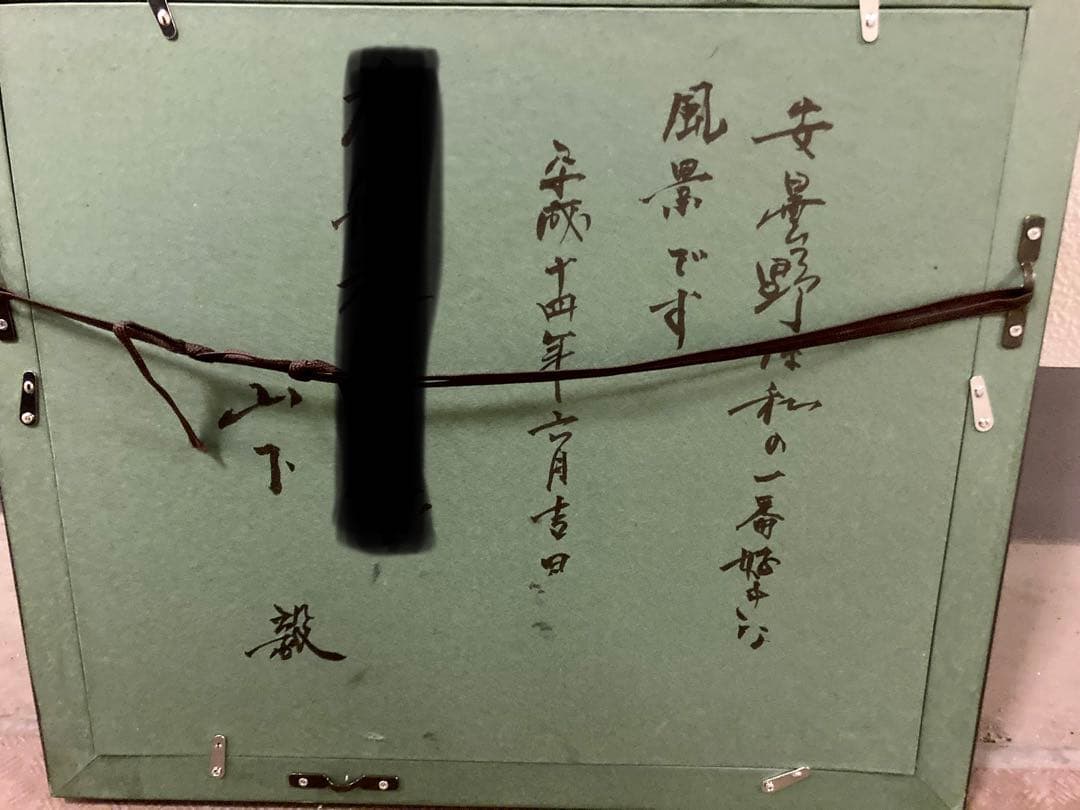 安曇野は私の一番好きな
風景です
平成十四年六月吉日
山下 毅